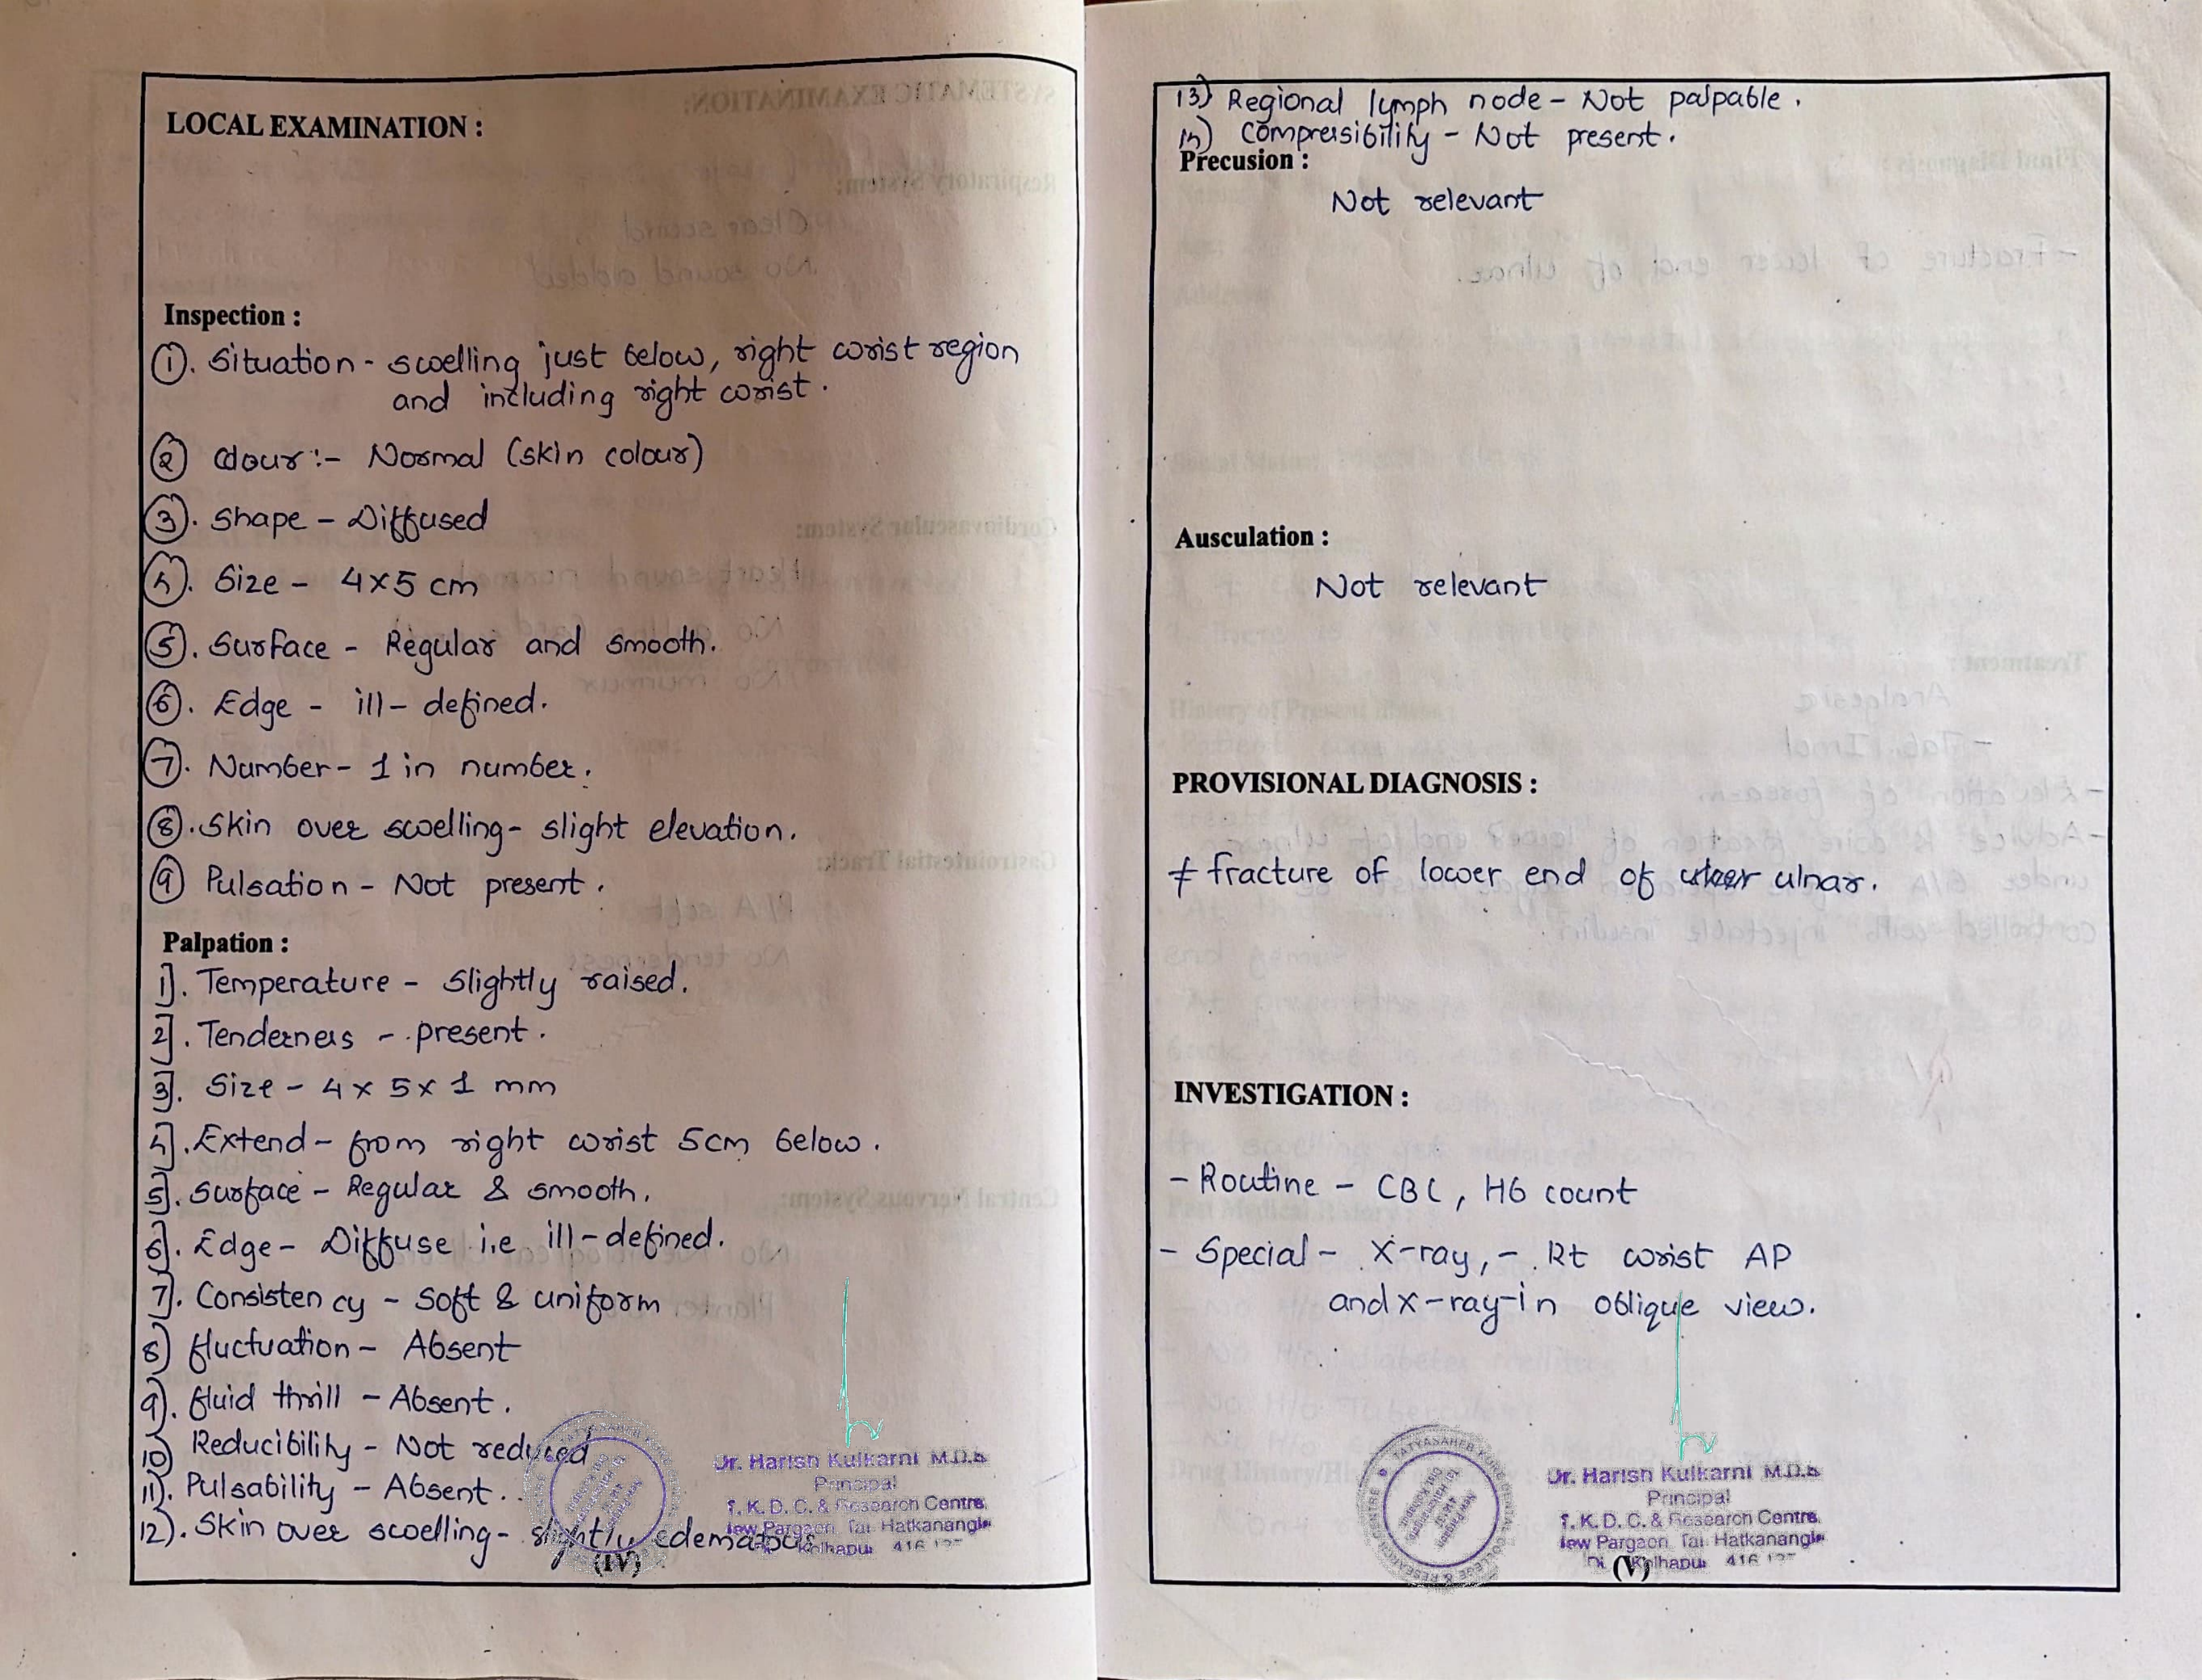 LOCAL EXAMINATION :
Inspection :
①. Situation - swelling just below, right wrist region
and including right wrist.
② Colour :- Normal (skin colour)
③. Shape - Diffused
④. Size - 4x5 cm
⑤. Surface - Regular and smooth.
⑥. Edge - ill-defined.
⑦. Number - 1 in number.
⑧. Skin over swelling - slight elevation.
⑨ Pulsation - Not present.
Palpation :
1]. Temperature - Slightly raised.
2]. Tenderness - present.
3]. Size - 4 x 5 x 1 mm
4]. Extend - from right wrist 5cm below.
5]. Surface - Regular & smooth.
6]. Edge - Diffuse i.e ill-defined.
7]. Consistency - Soft & uniform
8) fluctuation - Absent
9). fluid thrill - Absent.
10) Reducibility - Not reduced
11). Pulsability - Absent.
12). Skin over swelling - slightly edematous
(IV)
Dr. Harish Kulkarni M.D.S
Principal
T. K. D. C. & Research Centre,
New Pargaon, Tal. Hatkanangle
Kolhapur 416
13) Regional lymph node - Not palpable.
14) Compressibility - Not present.
Precusion :
Not relevant
Ausculation :
Not relevant
PROVISIONAL DIAGNOSIS :
fracture of lower end of ulnar.
INVESTIGATION :
- Routine - CBC, Hb count
- Special - X-ray, - Rt wrist AP
and x-ray-in oblique view.
TATYASAHEB KORE DENTAL COLLEGE & RESEARCH CENTRE
Dr. Harish Kulkarni M.D.S
Principal
T. K. D. C. & Research Centre,
New Pargaon, Tal. Hatkanangle
Kolhapur 416
(V)